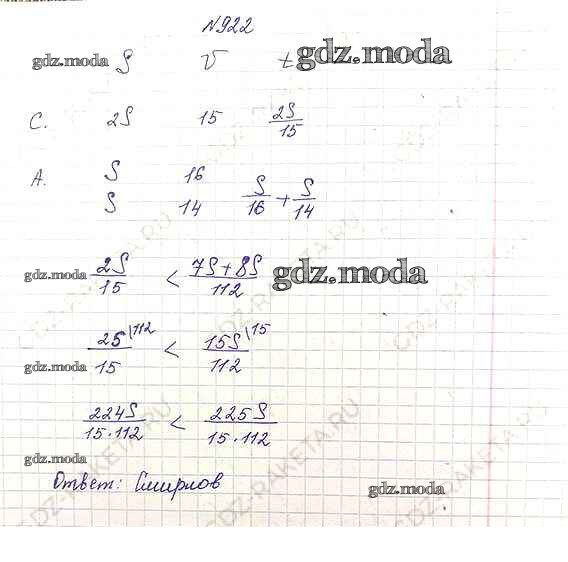 N922
gdz.moda S V t gdz.moda
С. 2S 15 2S/15
А. S 16
S 14 S/16 + S/14
gdz.moda 2S/15 < 7S+8S/112 gdz.moda
2S\112/15 < 15S\15/112
gdz.moda
224S/15·112 < 225S/15·112
gdz.moda
Ответ: Смирлов
gdz.moda
GDZ-RAKETA.RU
GDZ-RAKETA.RU